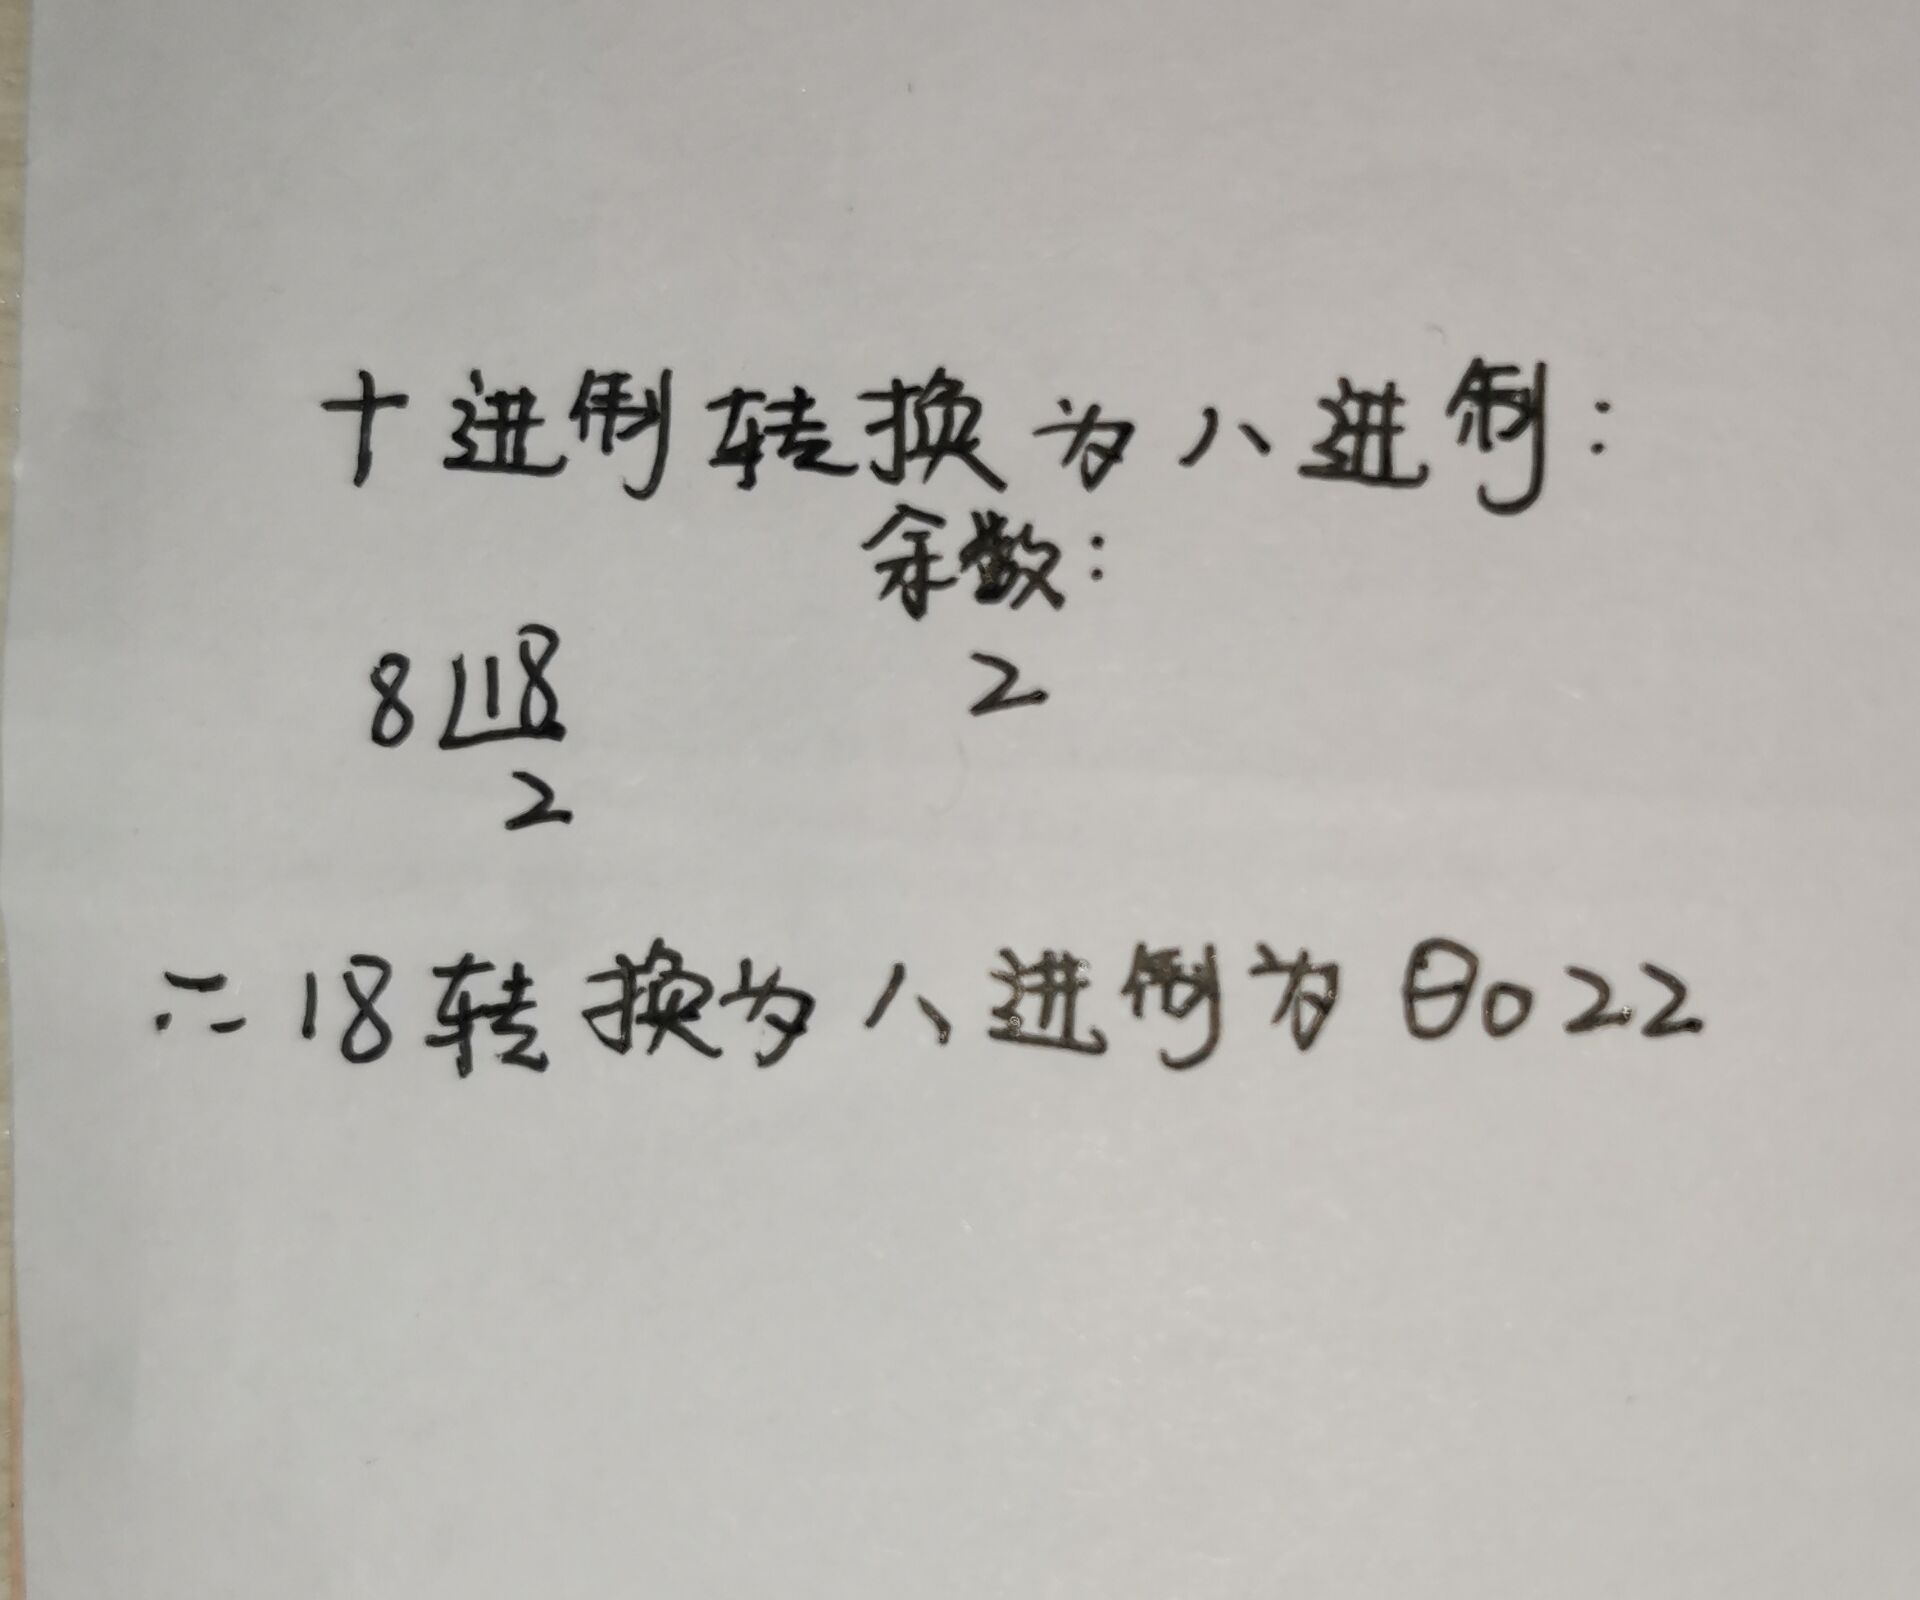 十进制转换为八进制：
余数：
8 18 2
2
∴ 18转换为八进制为 022